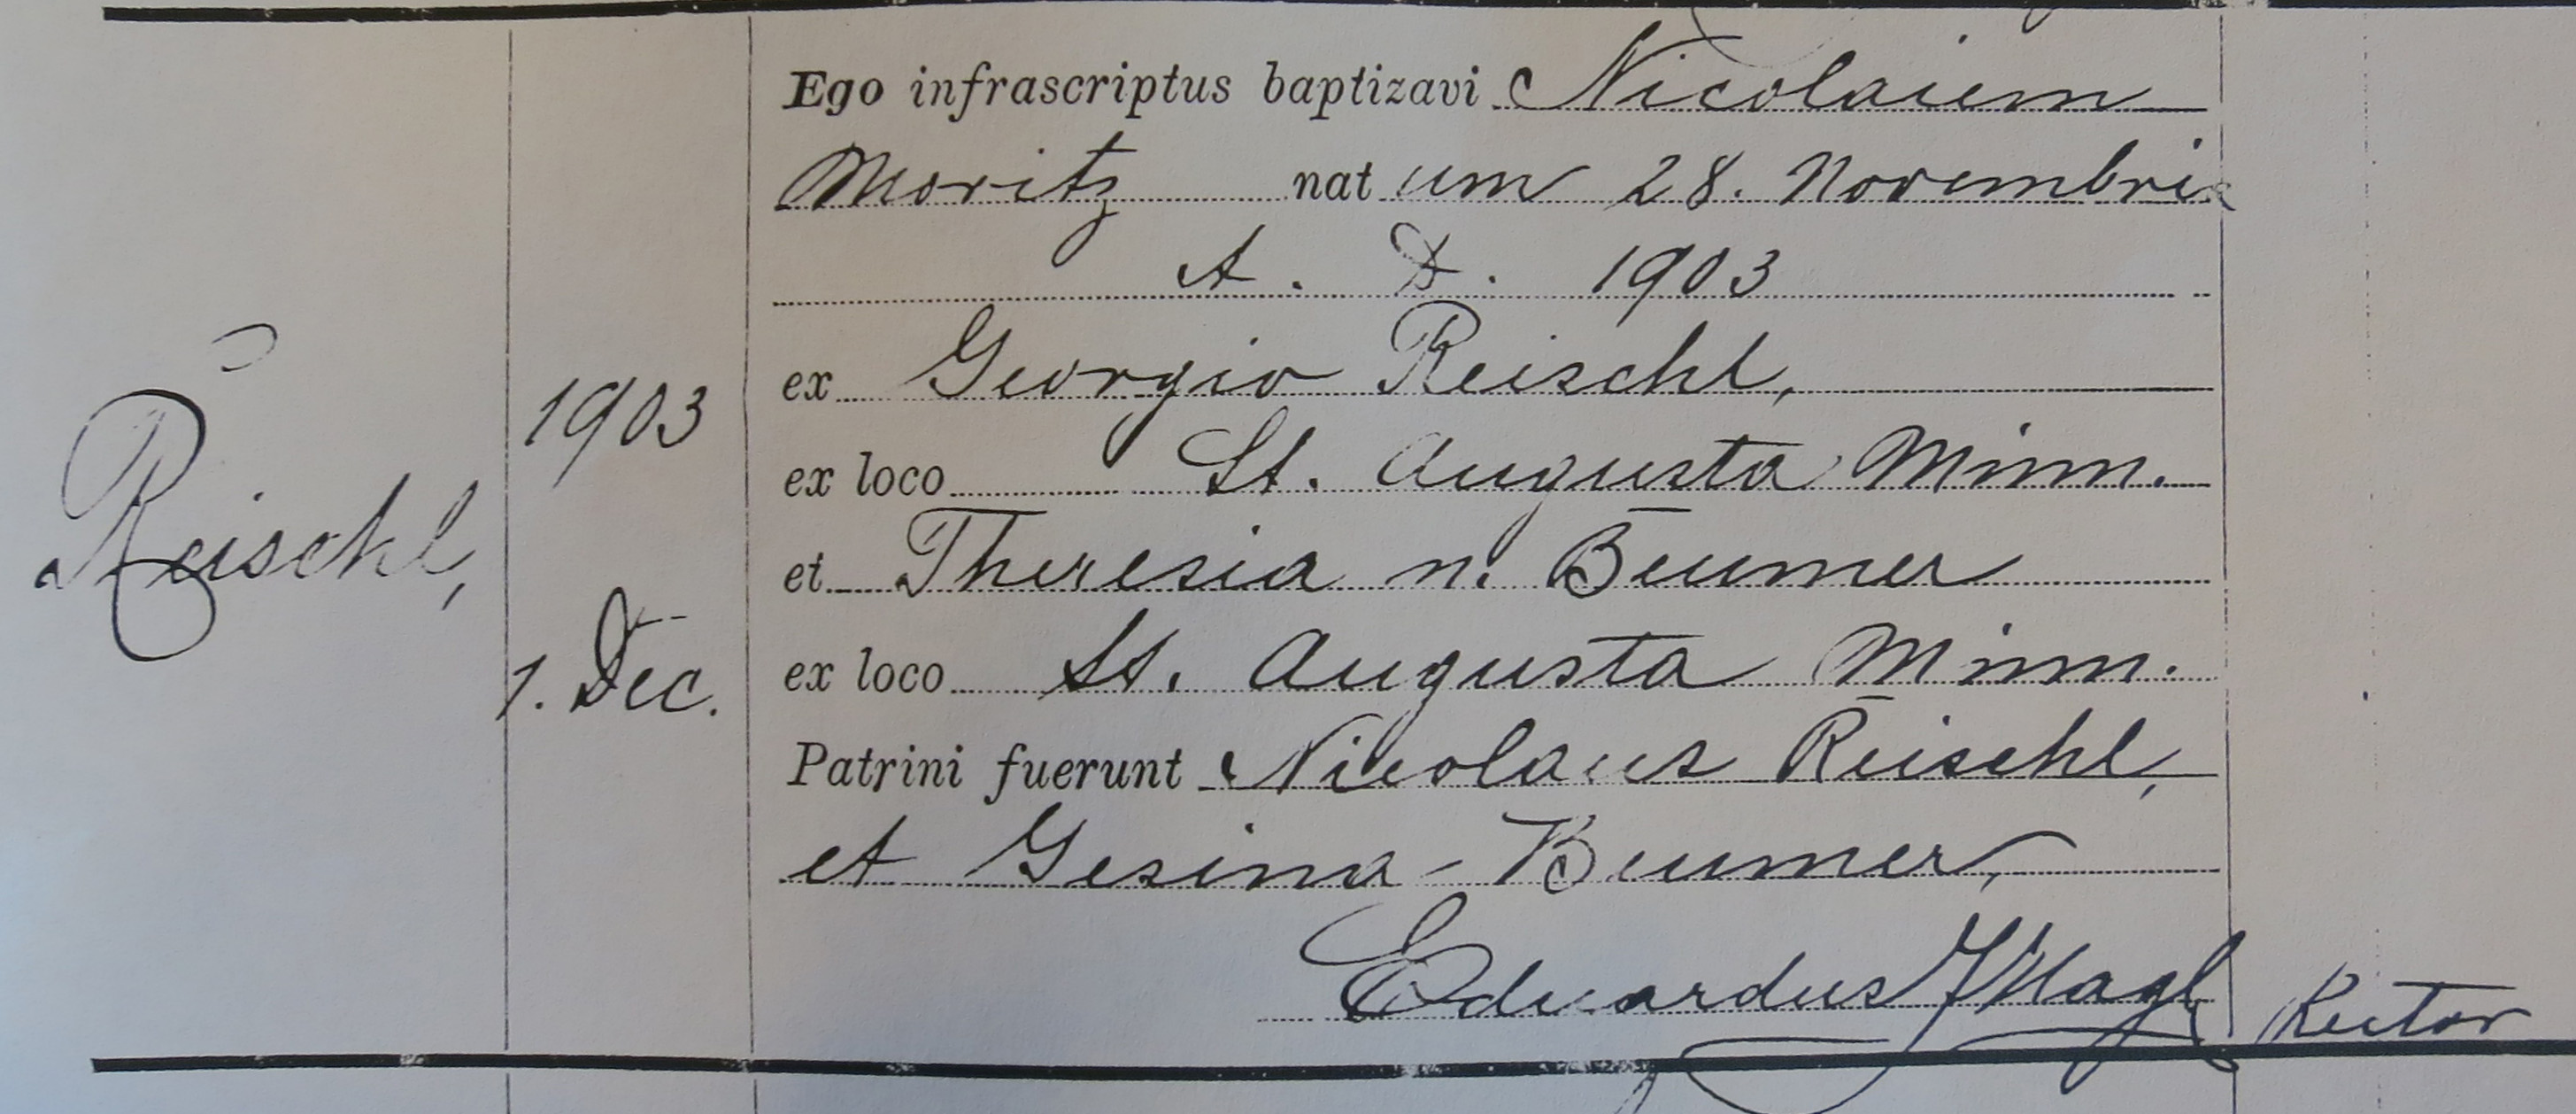 Reischl,
1903
1. Dec.
Ego infrascriptus baptizavi Nicolaium
Moritz nat um 28. Novembris
A. D. 1903
ex Georgio Reischl,
ex loco St. Augusta Minn.
et Theresia n. Beumer
ex loco St. Augusta Minn.
Patrini fuerunt Nicolaus Reischl,
et Gesina Beumer,
Eduardus Nagl Rector